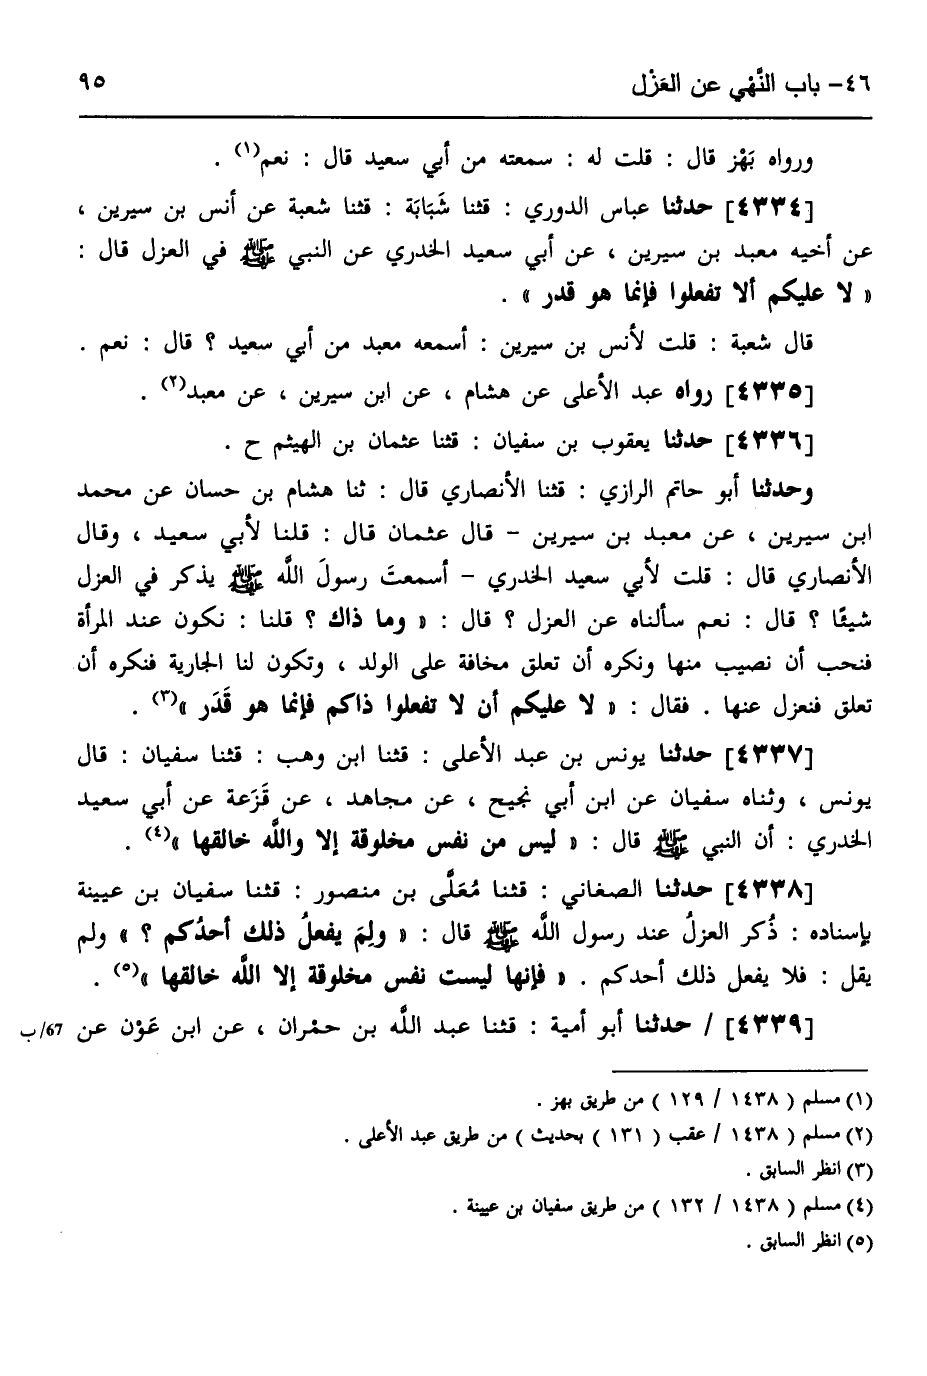 ٤٦- باب النَّهْي عن العَزْل ٩٥
ورواه بَهْز قال : قلت له : سمعته من أبي سعيد قال : نعم(١) .
[٤٣٣٤] حدثنا عباس الدوري : قثنا شَبَابَة : قثنا شعبة عن أنس بن سيرين ،
عن أخيه معبد بن سيرين ، عن أبي سعيد الخدري عن النبي ﷺ في العزل قال :
« لا عليكم ألا تفعلوا فإنما هو قدر » .
قال شعبة : قلت لأنس بن سيرين : أسمعه معبد من أبي سعيد ؟ قال : نعم .
[٤٣٣٥] رواه عبد الأعلى عن هشام ، عن ابن سيرين ، عن معبد(٢) .
[٤٣٣٦] حدثنا يعقوب بن سفيان : قثنا عثمان بن الهيثم ح .
وحدثنا أبو حاتم الرازي : قثنا الأنصاري قال : ثنا هشام بن حسان عن محمد
ابن سيرين ، عن معبد بن سيرين – قال عثمان قال : قلنا لأبي سعيد ، وقال
الأنصاري قال : قلت لأبي سعيد الخدري – أسمعتَ رسولَ اللَّه ﷺ يذكر في العزل
شيئًا ؟ قال : نعم سألناه عن العزل ؟ قال : « وما ذاك ؟ قلنا : نكون عند المرأة
فنحب أن نصيب منها ونكره أن تعلق مخافة على الولد ، وتكون لنا الجارية فنكره أن
تعلق فنعزل عنها . فقال : « لا عليكم أن لا تفعلوا ذاكم فإنما هو قَدَر »(٣) .
[٤٣٣٧] حدثنا يونس بن عبد الأعلى : قثنا ابن وهب : قثنا سفيان : قال
يونس ، وثناه سفيان عن ابن أبي نجيح ، عن مجاهد ، عن قَزَعة عن أبي سعيد
الخدري : أن النبي ﷺ قال : « ليس من نفس مخلوقة إلا واللَّه خالقها »(٤) .
[٤٣٣٨] حدثنا الصغاني : قثنا مُعَلَّى بن منصور : قثنا سفيان بن عيينة
بإسناده : ذُكر العزلُ عند رسول اللَّه ﷺ قال : « ولِمَ يفعلُ ذلك أحدُكم ؟ » ولم
يقل : فلا يفعل ذلك أحدكم . « فإنها ليست نفس مخلوقة إلا اللَّه خالقها »(٥) .
[٤٣٣٩] / حدثنا أبو أمية : قثنا عبد اللَّه بن حمْران ، عن ابن عَوْن عن 67/ب
(١) مسلم ( ١٤٣٨ / ١٢٩ ) من طريق بهز .
(٢) مسلم ( ١٤٣٨ / عقب ( ١٣١ ) بحديث ) من طريق عبد الأعلى .
(٣) انظر السابق .
(٤) مسلم ( ١٤٣٨ / ١٣٢ ) من طريق سفيان بن عيينة .
(٥) انظر السابق .